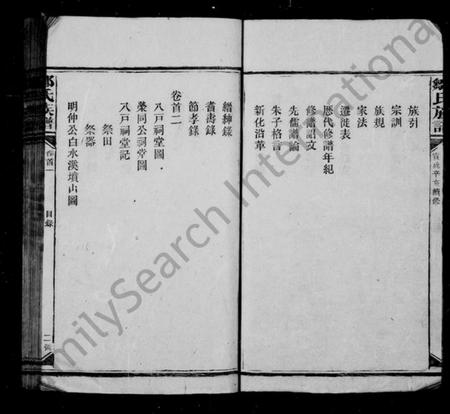 鄒氏族譜
族引
宗訓
族規
家法
遷徙表
歷代修譜年紀
修譜詔文
先儒譜論
朱子格言
新化沿革
縉紳錄
耆壽錄
節孝錄
卷首二
八戸祠堂圖
榮同公祠堂圖
八戸祠堂記
祭田
祭器
明仲公白水漢墳山圖
鄒氏族譜
卷首一
目錄
二
FamilySearch International